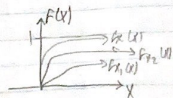 F(X)
1
Fx(X)
Fx₂(X)
Fx₁(X)
X